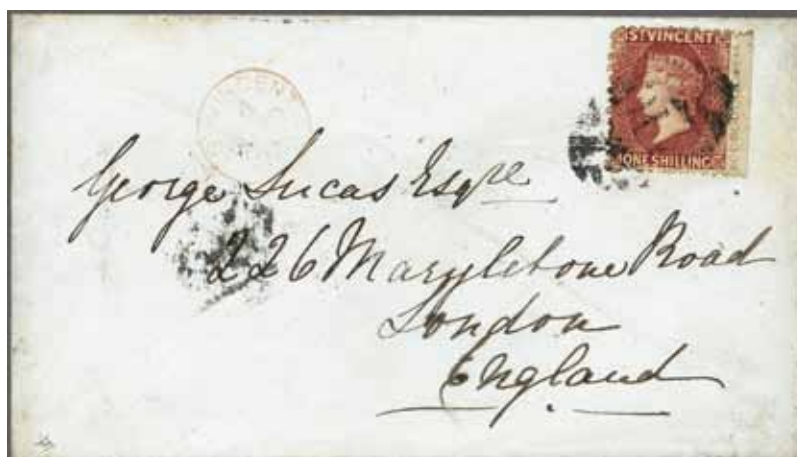 ST VINCENT
ONE SHILLING
George Lucas Esqre
226 Marylebone Road
London
England